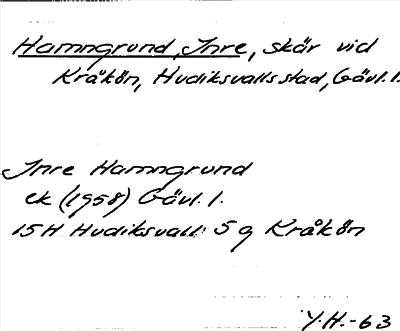 Hamngrund, Inre, skär vid
Kråkön, Hudiksvalls stad, Gävl. l.
Inre Hamngrund
ek (1958) Gävl. l.
15H Hudiksvall 5 g Kråkön
Y.H.-63